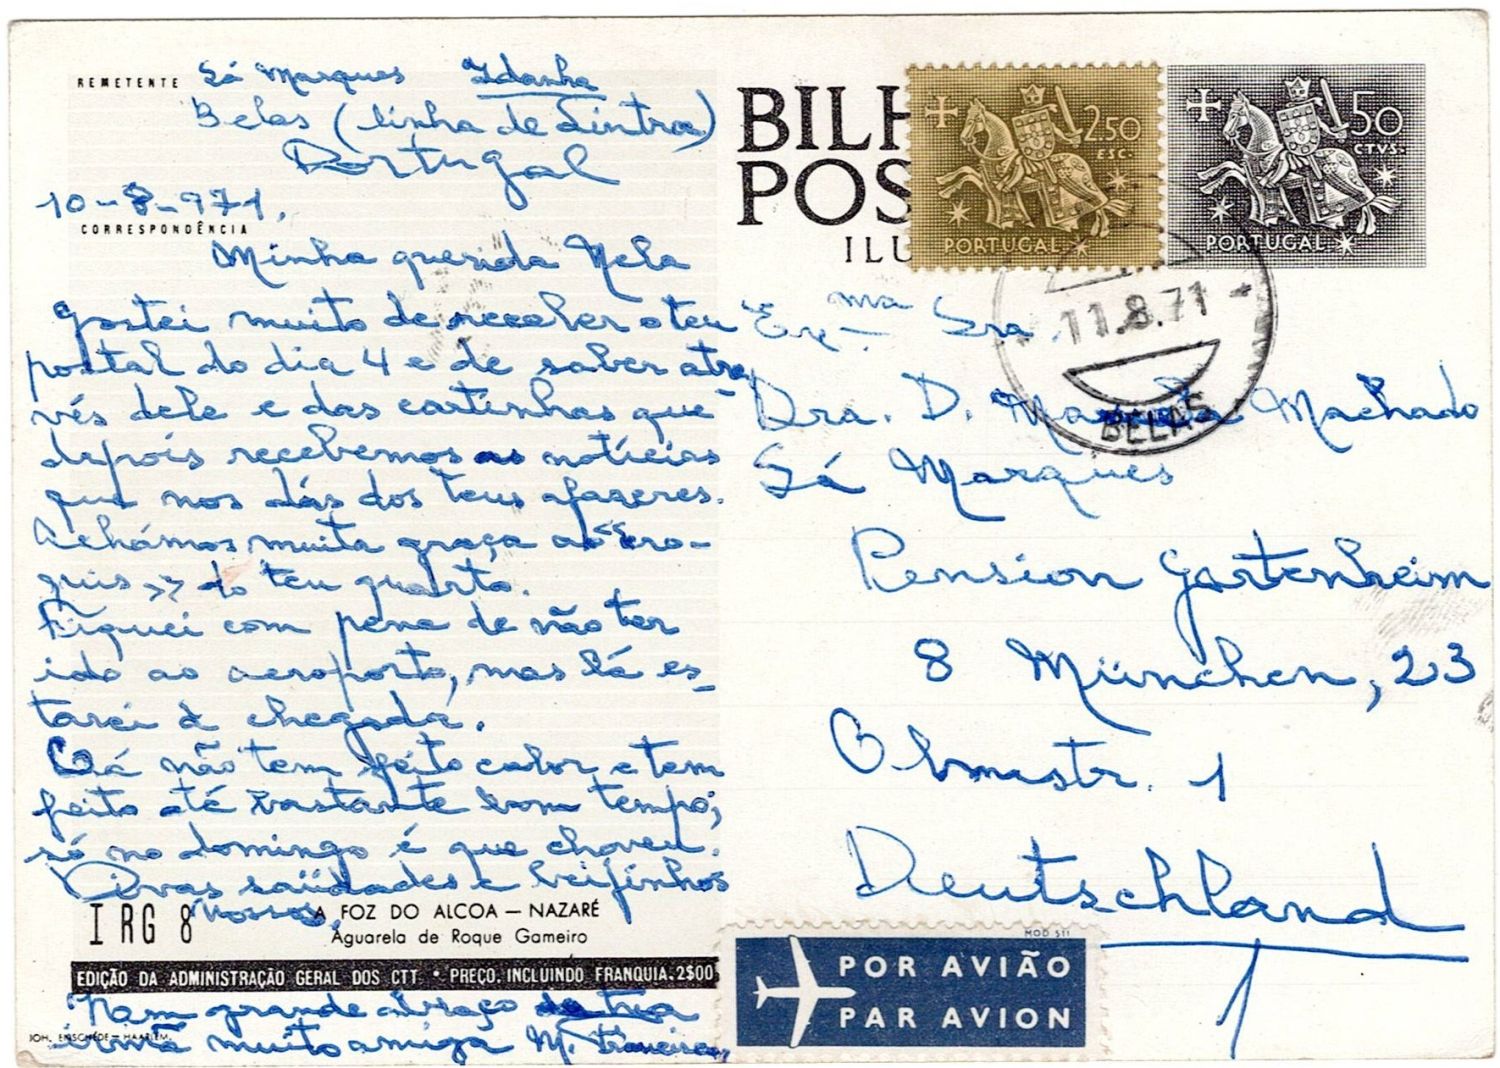 REMETENTE Sá Marques Idanha
Belas (linha de Sintra)
Portugal
10-8-971.
CORRESPONDÊNCIA
Minha querida Nela
Gostei muito de receber o teu
postal do dia 4 e de saber atra
vés dele e das cartinhas que
depois recebemos as notícias
que nos dás dos teus afazeres.
Achámos muita graça ao "cro-
quis >> do teu quarto.
Fiquei com pena de não ter
ido ao aeroporto, mas lá es-
tarei à chegada.
Cá não tem feito calor e tem
feito até bastante bom tempo;
só no domingo é que choveu.
saüdades e beijinhos
nossos,
IRG 8
A FOZ DO ALCOA — NAZARÉ
Aguarela de Roque Gameiro
EDIÇÃO DA ADMINISTRAÇÃO GERAL DOS CTT • PREÇO, INCLUINDO FRANQUIA. 2$00
grande abraço da tua
JOH. ENSCHEDE — HAARLEM.
irmã muito amiga M. Francisca
BILH
POS
ILU
2.50
ESC.
PORTUGAL
50
CTVS.
PORTUGAL
11.8.71
BELAS
Exma Sra.
Dra. D. Machado
Sá Marques
Pension Gartenheim
8 München, 23
Ohmstr. 1
Deutschland
MOD 511
POR AVIÃO
PAR AVION